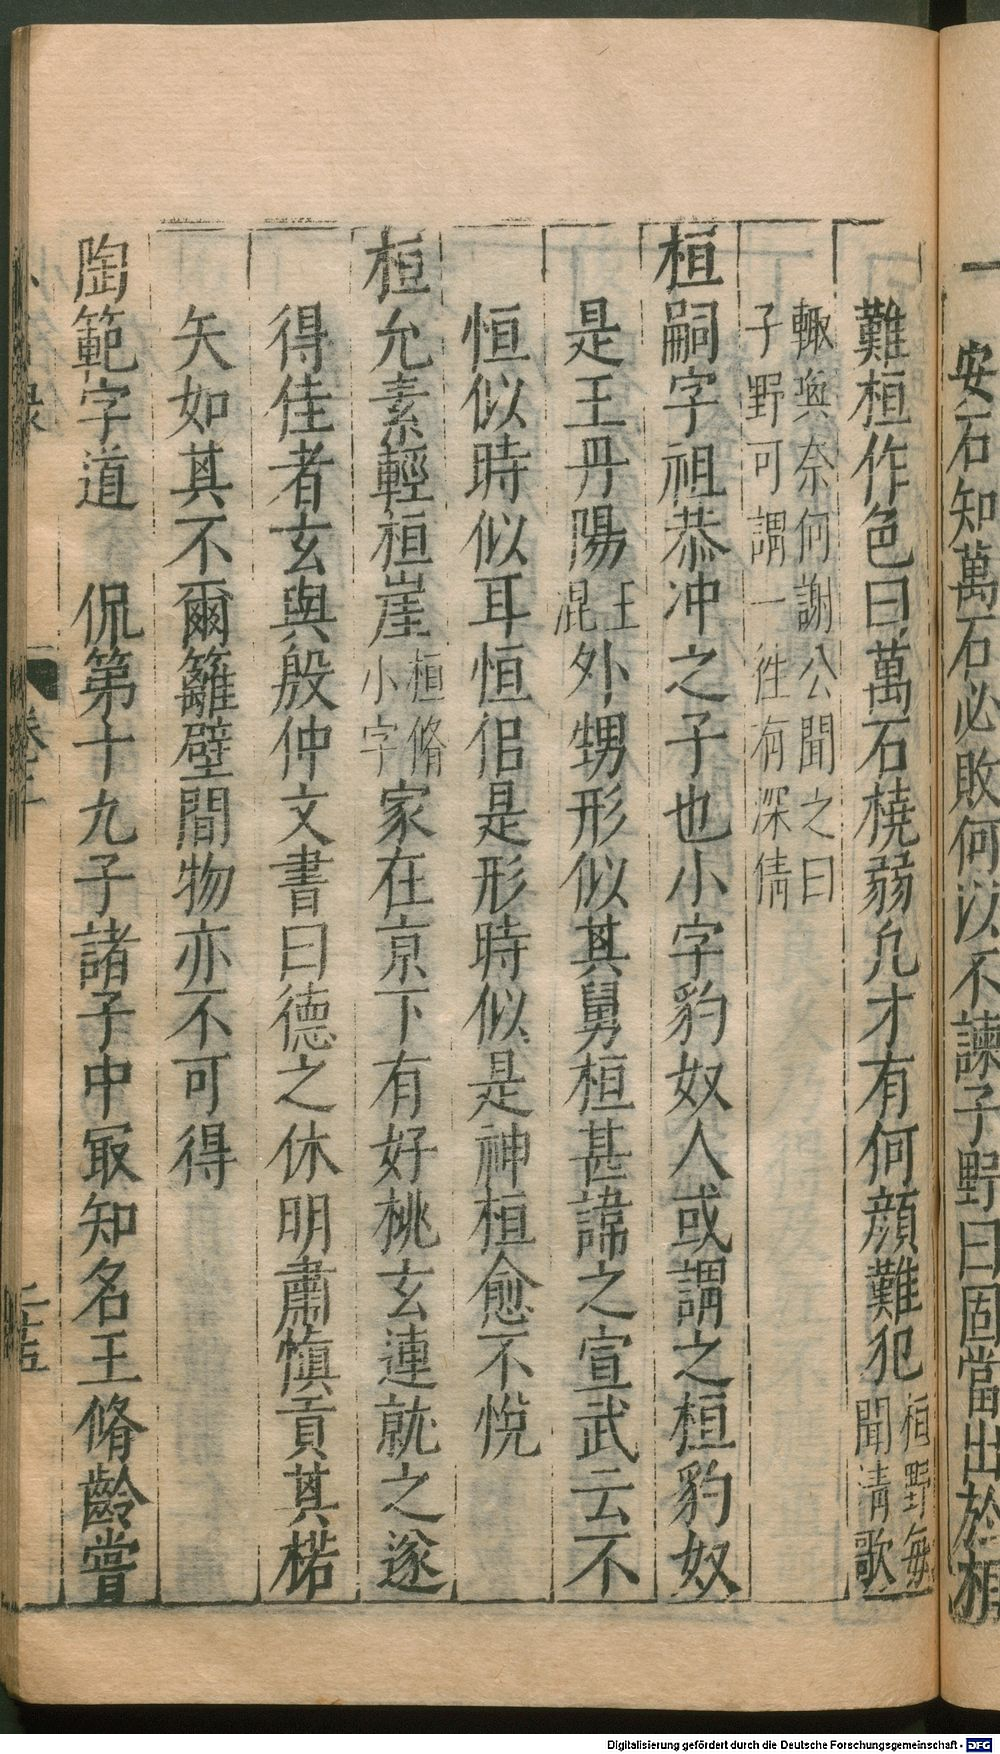 安石知萬石必敗何以不諫子野曰固當出於
難桓作色曰萬石橈弱凢才有何顔難犯桓野每聞清歌
輒與奈何謝公聞之曰子野可謂一徃有深情
桓嗣字祖恭冲之子也小字豹奴人或謂之桓豹奴
是王丹陽王混外甥形似其舅桓甚諱之宣武云不
恒似時似耳恒佀是形時似是神桓愈不悅
桓允素輕桓崖桓脩小字家在京下有好桃玄連就之遂
得佳者玄與殷仲文書曰德之休明肅愼貢其楛
矢如其不爾籬壁間物亦不可得
陶範字道 侃第十九子諸子中冣知名王脩齡嘗
小名錄 卷下 二十五
Digitalisierung gefördert durch die Deutsche Forschungsgemeinschaft - DFG